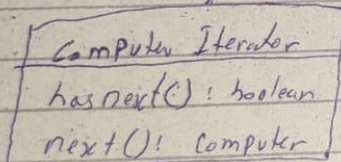 Computer Iterator
hasnext() : boolean
next() : Computer